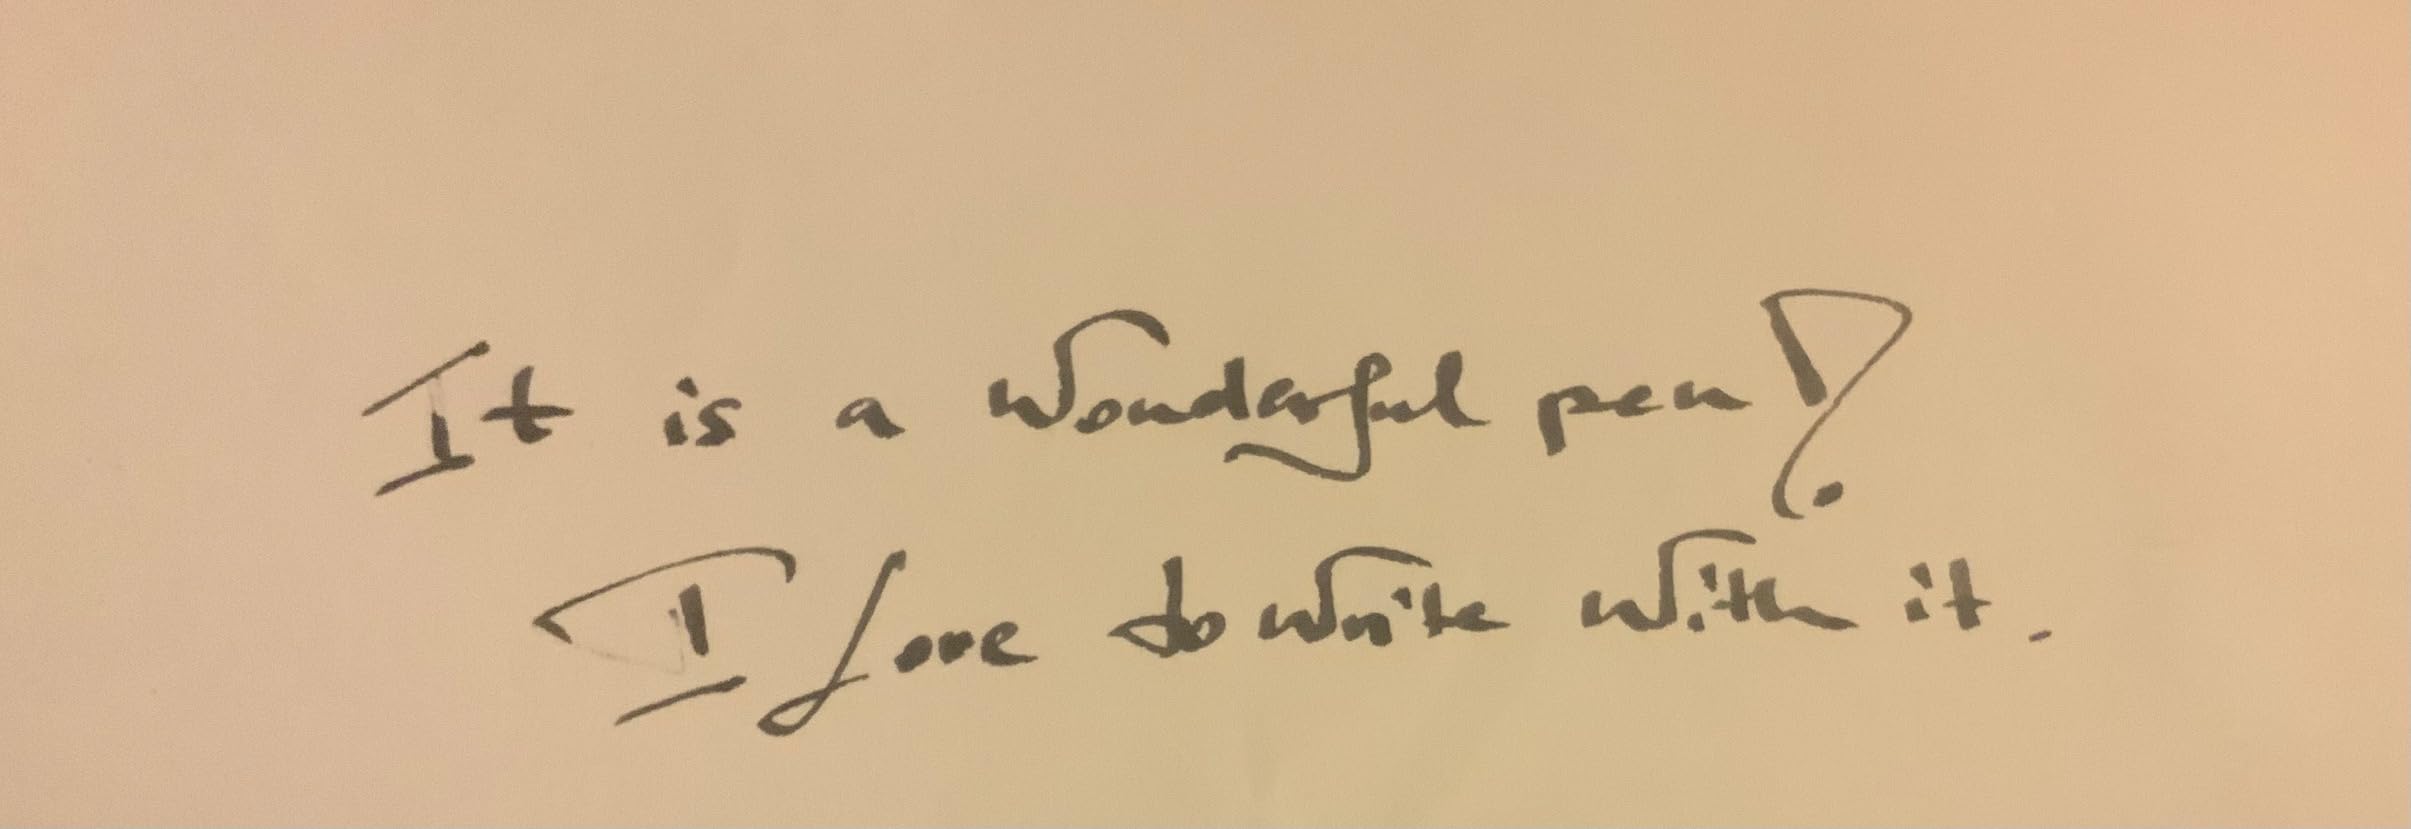 It is a wonderful pen!
I love to write with it.